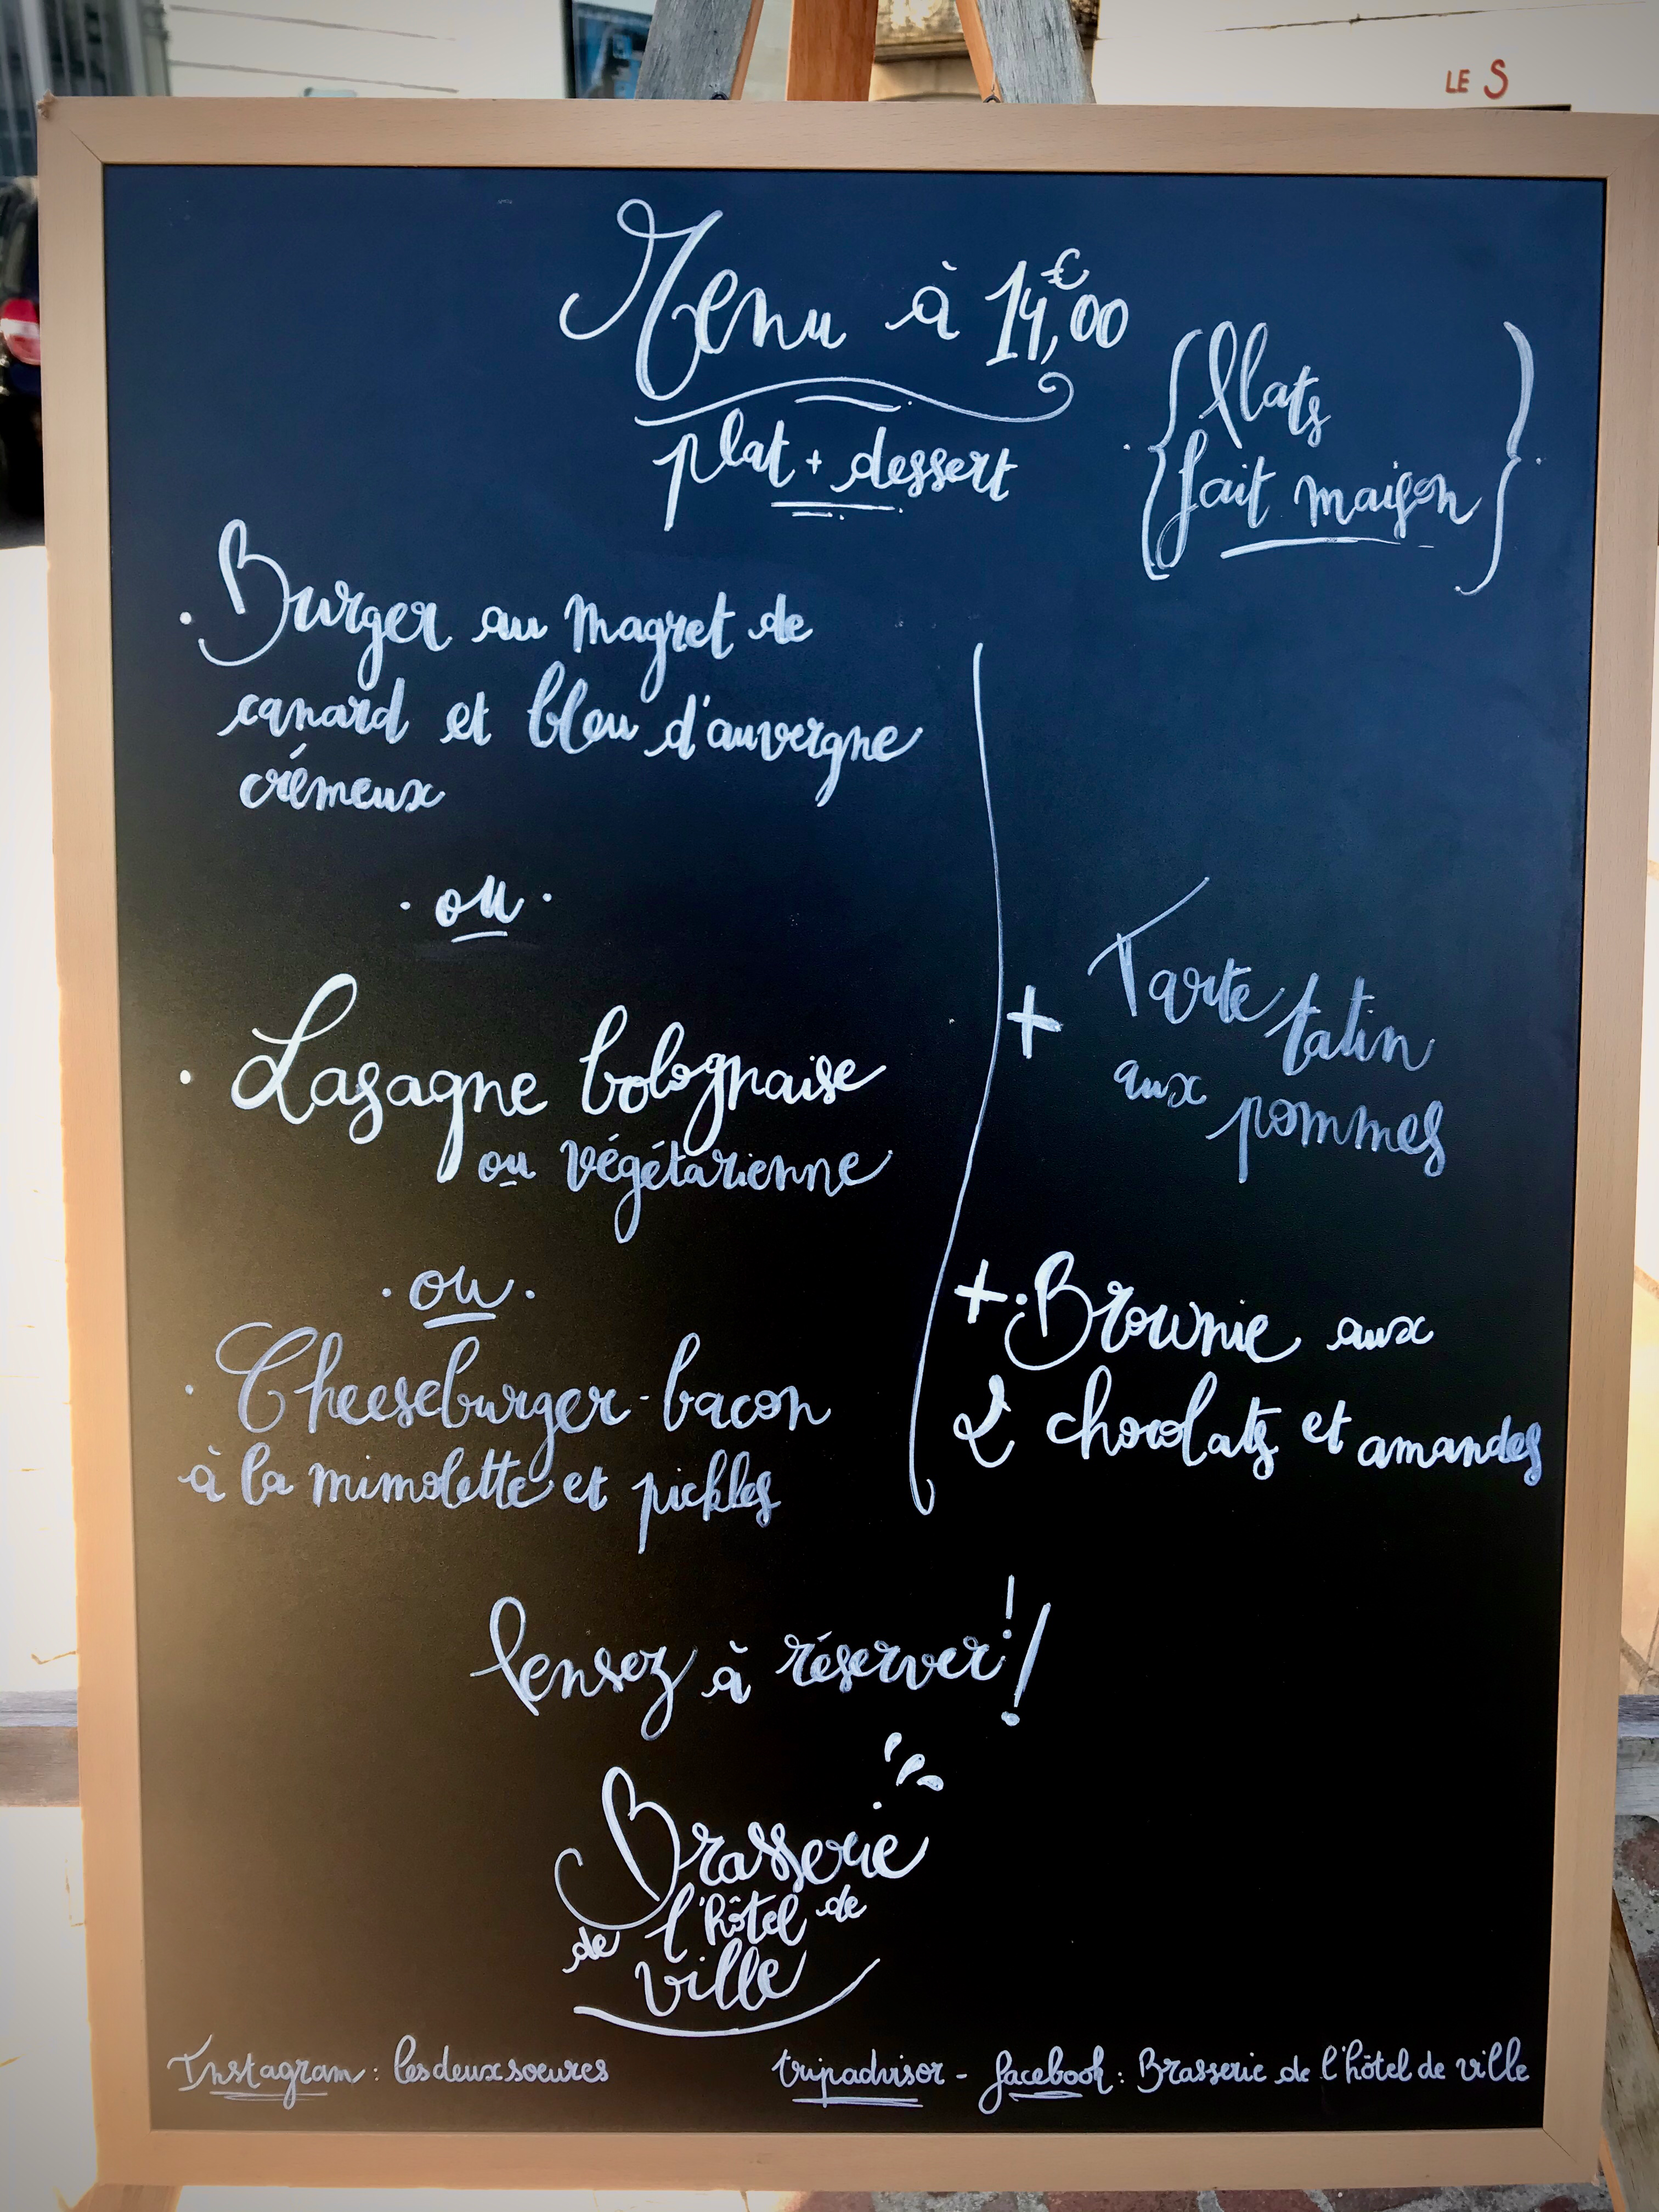 LE S
Menu à 14,€00
plat + dessert
{Plats
fait maison}
. Burger au magret de
canard et bleu d'auvergne
crémeux
. ou .
. Lasagne bolognaise
ou végétarienne
. ou .
. Cheeseburger-bacon
à la mimolette et pickles
+ Tarte tatin
aux pommes
+ . Brownie aux
2 chocolats et amandes
Pensez à réserver !!
Brasserie
de l'hôtel de
ville
Instagram : lesdeuxsoeures
tripadvisor - facebook : Brasserie de l'hôtel de ville